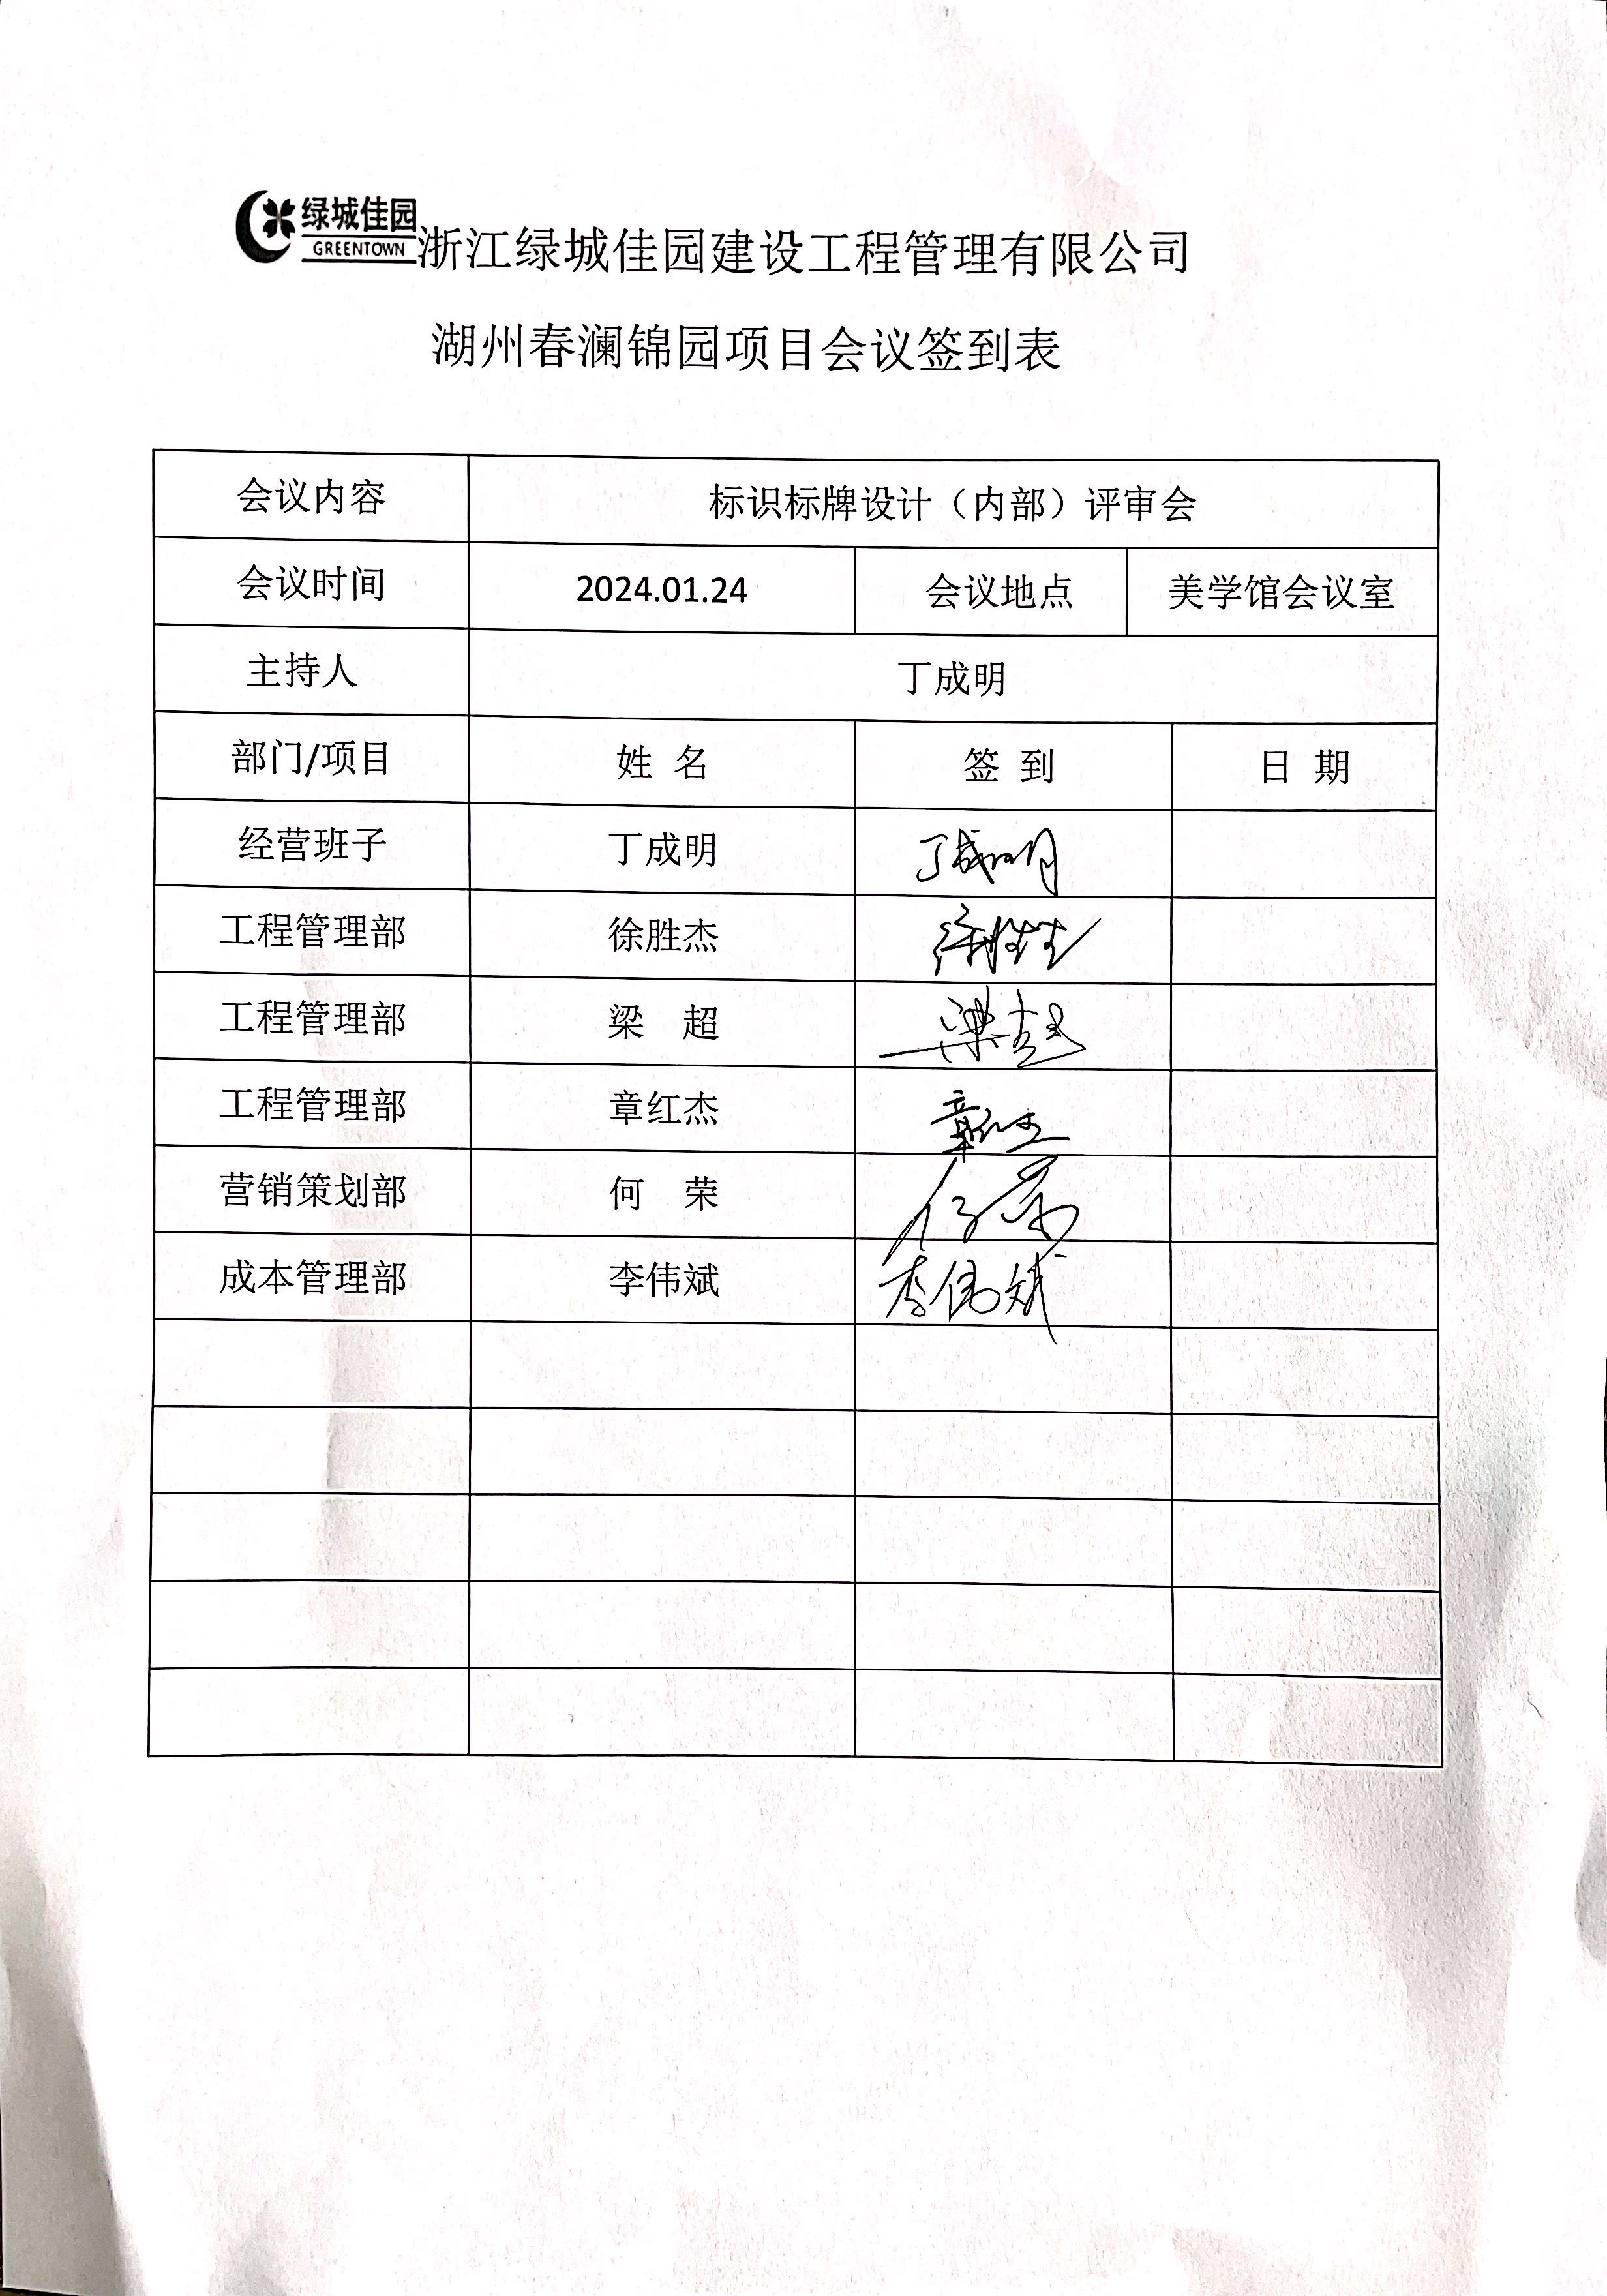 绿城佳园
GREENTOWN
浙江绿城佳园建设工程管理有限公司
湖州春澜锦园项目会议签到表
会议内容 标识标牌设计（内部）评审会
会议时间 2024.01.24 会议地点 美学馆会议室
主持人 丁成明
部门/项目 姓 名 签 到 日 期
经营班子 丁成明 丁成明
工程管理部 徐胜杰 徐胜杰
工程管理部 梁 超 梁超
工程管理部 章红杰 章红杰
营销策划部 何 荣 何荣
成本管理部 李伟斌 李伟斌